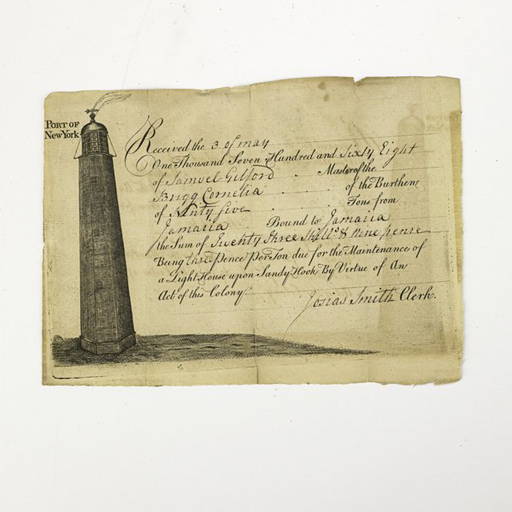 PORT OF
New York
Received the 3 of may
One Thousand Seven Hundred and Sixty Eight
of Samuel Gilford Master of the
Brigg Cornelia of the Burthen
of Ninty five Tons from
Jamaiia Bound to Jamaiia
the Sum of Twenty Three Shills & Nine pence
Being three Pence Per Ton due for the Maintenance of
a Light House upon Sandy Hook By Virtue of An
Act of this Colony
Josias Smith Clerk.